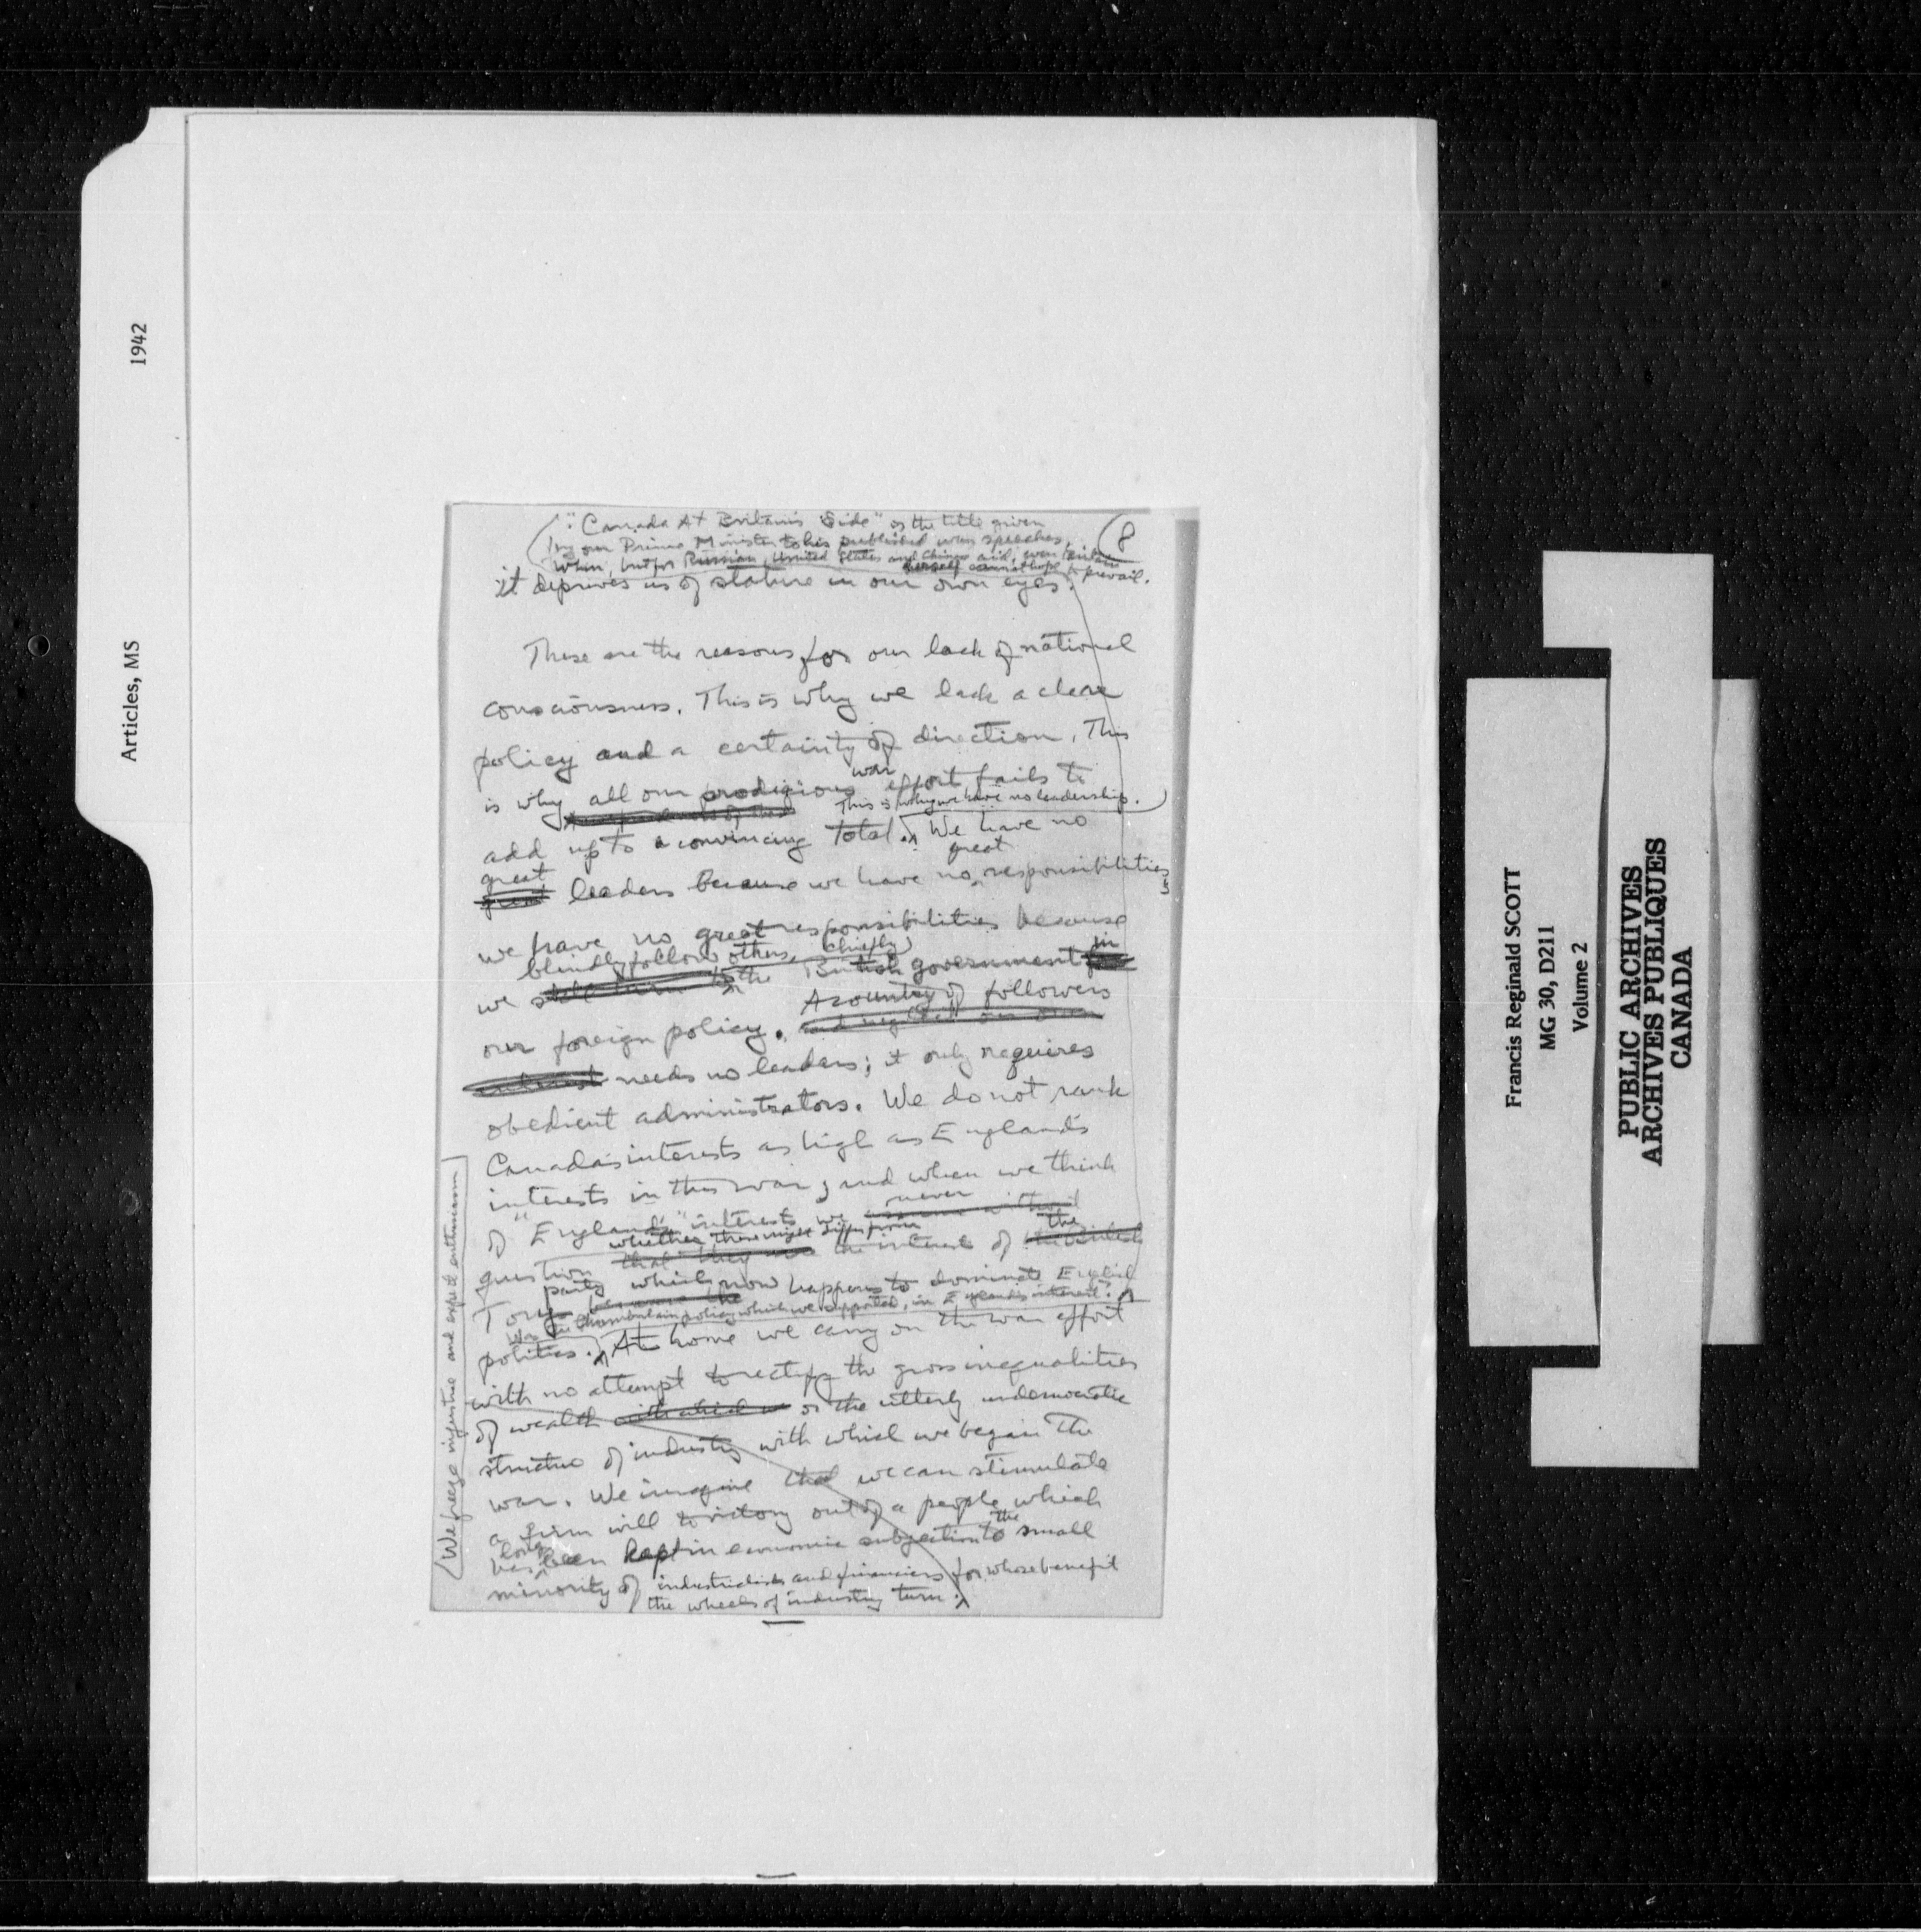 1942
Articles, MS
"Canada At Britain's Side" is the title given
by our Prime Minister to his published war speeches,
when, but for Russian, United States and Chinese aid, even Britain
herself cannot hope to prevail.
8
it deprives us of stature in our own eyes.
These are the reasons for our lack of national
consciousness. This is why we lack a clear
policy and a certainty of direction. This
war
is why all our prodigious effort fails to
This is why we have no leadership.
add up to a convincing total. We have no
great great
leaders because we have no responsibilities;
we have no great responsibilities because
blindly follow others, (chiefly) in
we still the British government
A country of followers
our foreign policy.
needs no leaders; it only requires
obedient administrators. We do not rank
Canada's interests as high as England's
interests in this war; and when we think
never
of "England's" interests we
whether these might differ from the
question that they the interest of
party which now happens to dominate English
Tory
Was the Chamberlain policy which we supported, in England's interest?
politics. At home we carry on the war effort
with no attempt to rectify the gross inequalities
of wealth with which we or the utterly undemocratic
structure of industry with which we began the
war. We imagine that we can stimulate
a firm will to victory out of a people which
long the
has been kept in economic subjection to small
minority of industrialists and financiers for whose benefit
the wheels of industry turn.
(We freeze injustice and expect enthusiasm)
Francis Reginald SCOTT
MG 30, D211
Volume 2
PUBLIC ARCHIVES
ARCHIVES PUBLIQUES
CANADA